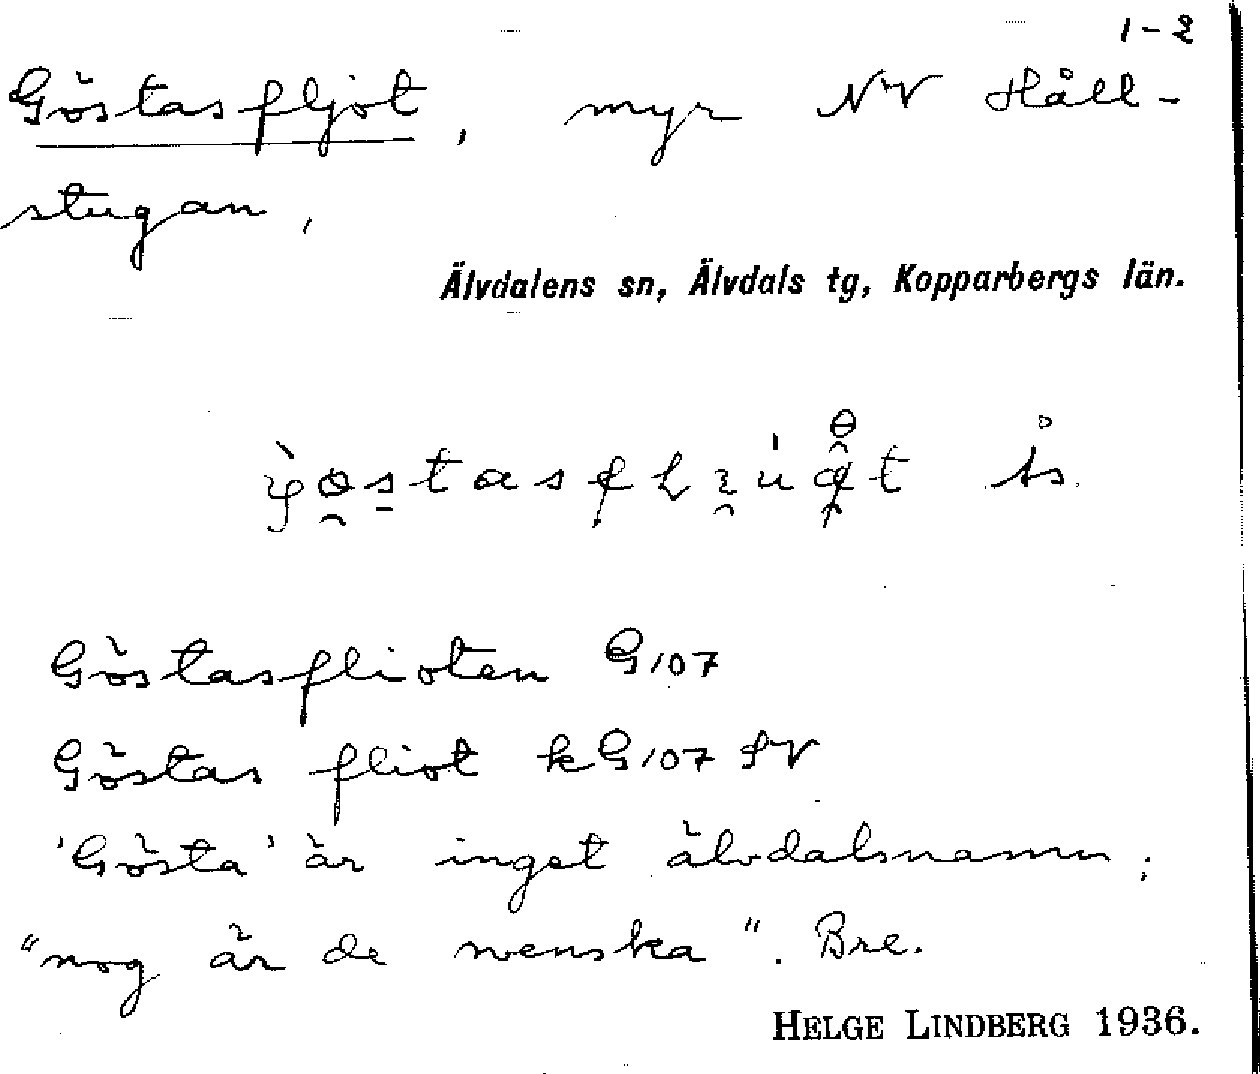 1-2
Göstasfljot, myr NV Håll-
stugan,
Älvdalens sn, Älvdals tg, Kopparbergs län.
Göstasflioten G107
Göstas fliot kG107 SV
'Gösta' är inget älvdalsnamn;
"nog är de svenska". Bre.
HELGE LINDBERG 1936.